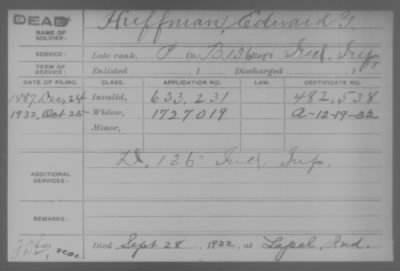 DEAD
NAME OF SOLDIER: Huffman, Edward G.
SERVICE: Late rank, P Co. B, 136 Reg't Ind. Inf.
TERM OF SERVICE: Enlisted , 1 Discharged
DATE OF FILING. CLASS. APPLICATION NO. LAW. CERTIFICATE NO.
1887, Dec. 24 Invalid, 633,231 482,538
1932, Oct 25 Widow, 1727019 A-12-19-32
Minor,
ADDITIONAL SERVICES: D, 136 Ind. Inf.
REMARKS:
Died Sept 28, 1932, at Lapel, Ind.